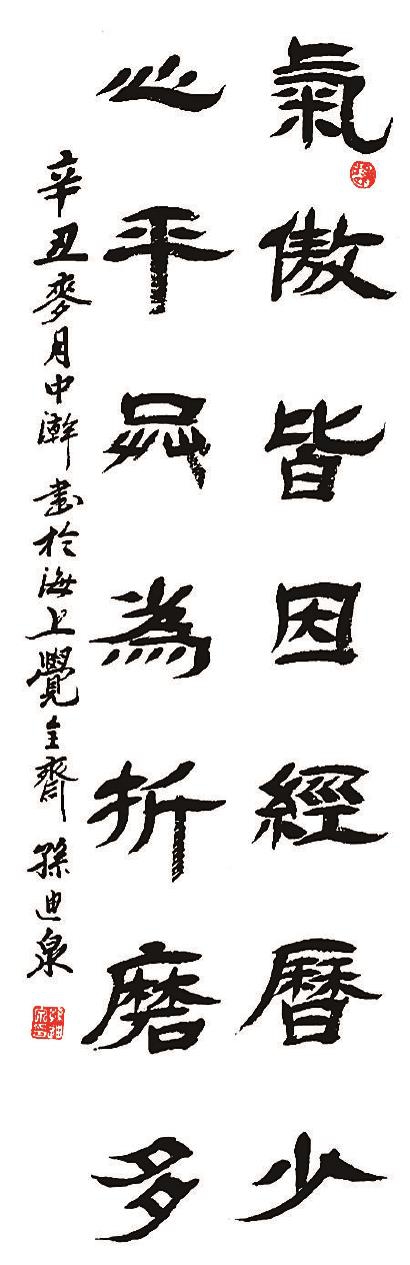 氣傲皆因經曆少
心平只為折磨多
辛丑麥月中澣書於海上覺齋孫迪泉